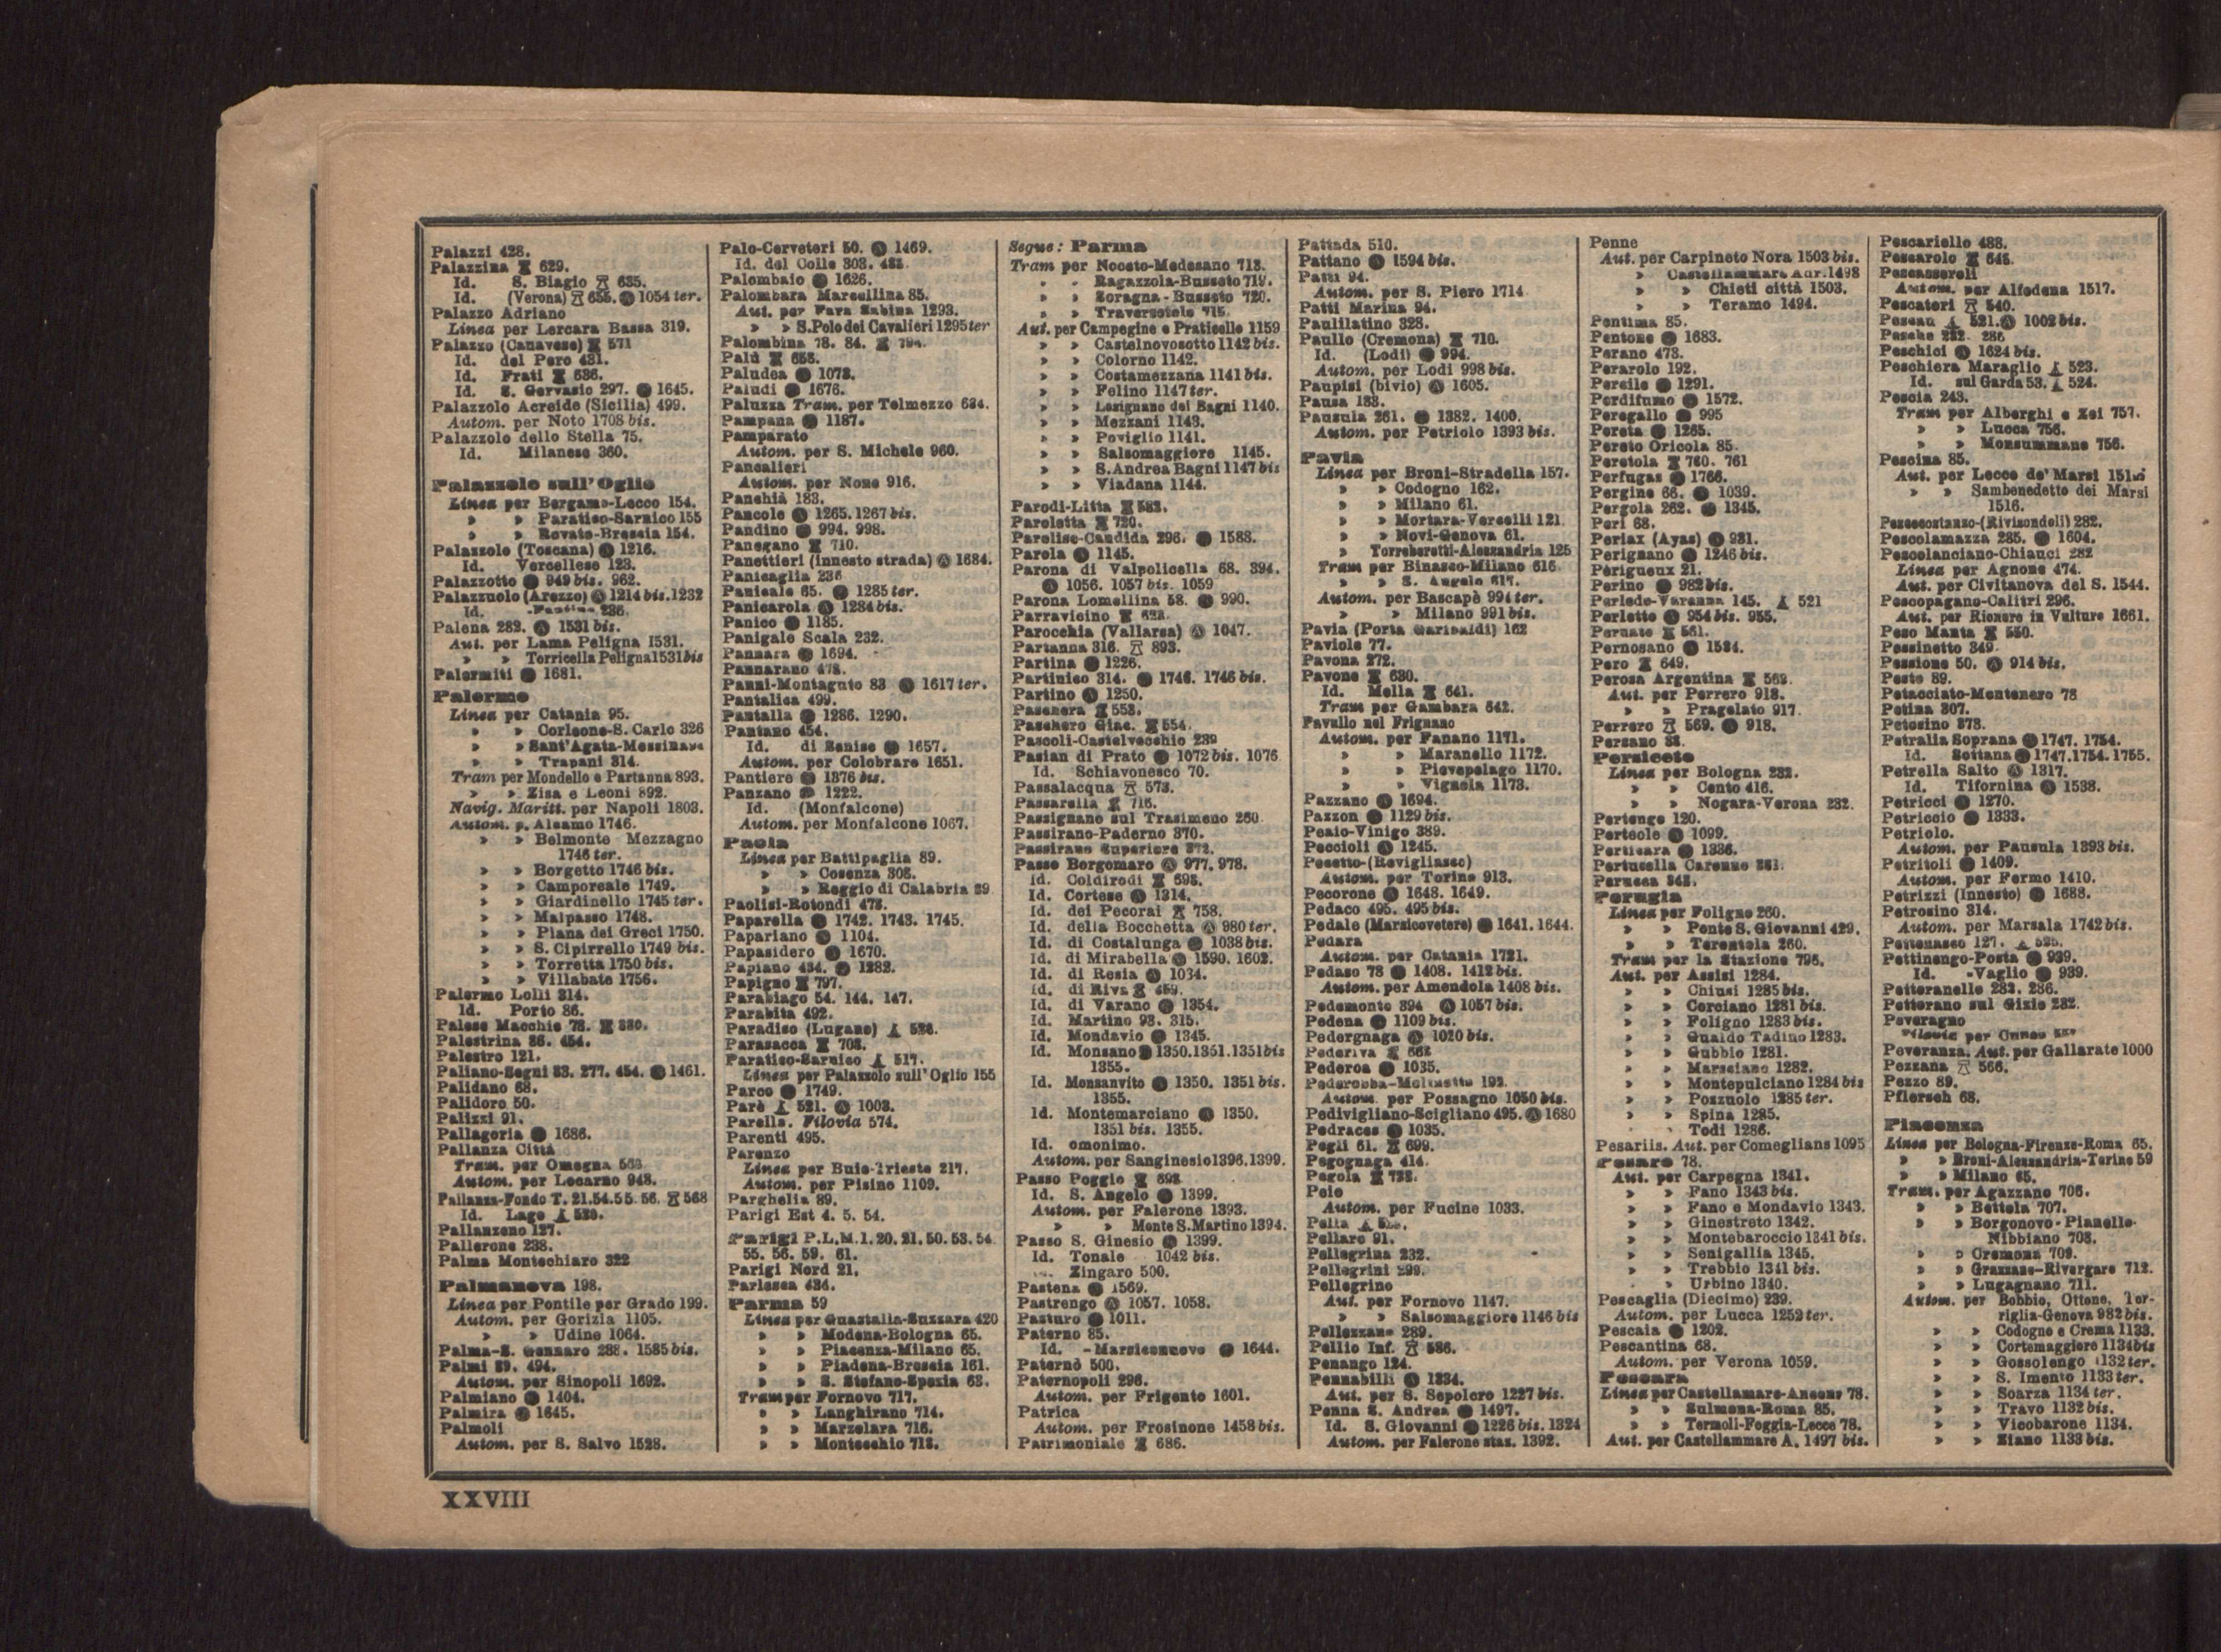 Palazzi 428.
Palazzina 629.
Id. S. Biagio 635.
Id. (Verona) 655. Ⓐ 1054 ter.
Palazzo Adriano
Linea per Lercara Bassa 319.
Palazzo (Canavese) 571
Id. del Pero 431.
Id. Frati 636.
Id. S. Gervasio 297. 1645.
Palazzolo Acreide (Sicilia) 499.
Autom. per Noto 1708 bis.
Palazzolo dello Stella 75.
Id. Milanese 360.
Palazzolo sull'Oglio
Linea per Bergamo-Lecco 154.
» » Paratico-Sarnico 155
» » Rovato-Brescia 154.
Palazzolo (Toscana) 1216.
Id. Vercellese 123.
Palazzotto 949 bis. 962.
Palazzuolo (Arezzo) Ⓐ 1214 bis. 1232
Id. 236.
Palena 282. Ⓐ 1531 bis.
Aut. per Lama Peligna 1531.
» » Torricella Peligna 1531 bis
Palermiti 1681.
Palermo
Linea per Catania 95.
» » Corleone-S. Carlo 326
» » Sant'Agata-Messina
» » Trapani 314.
Tram per Mondello e Partanna 893.
» » Zisa e Leoni 892.
Navig. Maritt. per Napoli 1803.
Autom. p. Alcamo 1746.
» » Belmonte Mezzagno
1746 ter.
» » Borgetto 1746 bis.
» » Camporeale 1749.
» » Giardinello 1745 ter.
» » Malpasso 1748.
» » Piana dei Greci 1750.
» » S. Cipirrello 1749 bis.
» » Torretta 1750 bis.
» » Villabate 1756.
Palermo Lolli 314.
Id. Porto 86.
Palese Macchie 78. 880.
Palestrina 86. 454.
Palestro 121.
Paliano-Segni 83. 277. 454. 1461.
Palidano 68.
Palidoro 50.
Palizzi 91.
Pallagoria 1686.
Pallanza Città
Tram. per Omegna 568
Autom. per Locarno 948.
Pallanza-Fondo T. 21.54.55. 56. 568
Id. Lago
Pallanzeno 127.
Pallerone 238.
Palma Montechiaro 322
Palmanova 198.
Linea per Pontile per Grado 199.
Autom. per Gorizia 1105.
» » Udine 1064.
Palma-S. Gennaro 288. 1585 bis.
Palmi 89. 494.
Autom. per Sinopoli 1692.
Palmiano 1404.
Palmira 1645.
Palmoli
Autom. per S. Salvo 1528.
Palo-Cerveteri 50. Ⓐ 1469.
Id. del Colle 303. 488
Palombaio 1626.
Palombara Marcellina 85.
Aut. per Fara Sabina 1293.
» » S. Polo dei Cavalieri 1295 ter
Palombina 78. 84. 794.
Palù 658.
Paludea 1073.
Paludi 1676.
Paluzza Tram. per Tolmezzo 684.
Pampana 1187.
Pamparato
Autom. per S. Michele 960.
Pancalieri
Autom. per None 916.
Panchià 183.
Pancole 1265. 1267 bis.
Pandino 994. 998.
Panegano 710.
Panettieri (innesto strada) Ⓐ 1684.
Panicaglia 236
Panicale 65. 1285 ter.
Panicarola Ⓐ 1284 bis.
Panico 1185.
Panigale Scala 232.
Pannara 1694.
Pannarano 478.
Panni-Montaguto 83 1617 ter.
Pantalica 499.
Pantalla 1286. 1290.
Pantano 454.
Id. di Senise 1657.
Autom. per Colobraro 1651.
Pantiere 1376 bis.
Panzano 1222.
Id. (Monfalcone)
Autom. per Monfalcone 1067.
Paola
Linea per Battipaglia 89.
» » Cosenza 308.
» » Reggio di Calabria 89
Paolisi-Rotondi 478.
Paparella 1742. 1743. 1745.
Papariano 1104.
Papasidero 1670.
Papiano 434. 1282.
Papigno 797.
Parabiago 54. 144. 147.
Parabita 492.
Paradiso (Lugano) 528.
Parasacca 708.
Paratico-Sarnico 517.
Linea per Palazzolo sull' Oglio 155
Parco 1749.
Parè 521. Ⓐ 1003.
Parella. Filovia 574.
Parenti 495.
Parenzo
Linea per Buie-Trieste 217.
Autom. per Pisino 1109.
Parghelia 89.
Parigi Est 4. 5. 54.
Parigi P.L.M. 1. 20. 21. 50. 53. 54
55. 56. 59. 61.
Parigi Nord 21.
Parlesca 434.
Parma 59
Linea per Guastalla-Suzzara 420
» » Modena-Bologna 65.
» » Piacenza-Milano 65.
» » Piadena-Brescia 161.
» » S. Stefano-Spezia 63.
Tram per Fornovo 717.
» » Langhirano 714.
» » Marzolara 716.
» » Montecchio 713.
Segue: Parma
Tram per Noceto-Medesano 713.
» » Ragazzola-Busseto 719.
» » Soragna-Busseto 720.
» » Traversetolo 715.
Aut. per Campegine e Praticello 1159
» » Castelnovosotto 1142 bis.
» » Colorno 1142.
» » Costamezzana 1141 bis.
» » Felino 1147 ter.
» » Lesignano dei Bagni 1140.
» » Mezzani 1143.
» » Poviglio 1141.
» » Salsomaggiore 1145.
» » S. Andrea Bagni 1147 bis
» » Viadana 1144.
Parodi-Litta 583.
Paroletta 720.
Parolise-Candida 296. 1588.
Parola 1145.
Parona di Valpolicella 68. 394.
Ⓐ 1056. 1057 bis. 1059
Parona Lomellina 58. 990.
Parravicino
Parocchia (Vallarsa) Ⓐ 1047.
Partanna 316. 893.
Partina 1226.
Partinico 314. 1746. 1746 bis.
Partino Ⓐ 1250.
Paschera 553.
Paschero Giac. 554
Pascoli-Castelvecchio 239
Pasian di Prato 1072 bis. 1076
Id. Schiavonesco 70.
Passalacqua 573.
Passarella 716.
Passignano sul Trasimeno 260
Passirano-Paderno 370.
Passirano Superiore 372.
Passo Bergomaro Ⓐ 977. 978.
Id. Coldirodi 698.
Id. Cortese Ⓐ 1314.
Id. dei Pecorai 758.
Id. della Bocchetta Ⓐ 980 ter.
Id. di Costalunga 1038 bis.
Id. di Mirabella 1590. 1602.
Id. di Resia Ⓐ 1034.
Id. di Riva 459.
Id. di Varano 1354.
Id. Martino 93. 315.
Id. Mondavio 1345.
Id. Monsano 1350. 1351. 1351 bis
1355.
Id. Monsanvito 1350. 1351 bis.
1355.
Id. Montemarciano 1350.
1351 bis. 1355.
Id. omonimo.
Autom. per Sanginesio 1396. 1399.
Passo Poggio 698
Id. S. Angelo 1399.
Autom. per Falerone 1393.
» » Monte S. Martino 1394.
Passo S. Ginesio 1399.
Id. Tonale 1042 bis.
Zingaro 500.
Pastena 1569.
Pastrengo Ⓐ 1057. 1058.
Pasturo 1011.
Paterno 85.
Id. -Marsiconuovo 1644.
Paternò 500.
Paternopoli 296.
Autom. per Frigento 1601.
Patrica
Autom. per Frosinone 1458 bis.
Patrimoniale 686.
Pattada 510.
Pattano 1594 bis.
Patti 94.
Autom. per S. Piero 1714
Patti Marina 94.
Paulilatino 328.
Paullo (Cremona) 710.
Id. (Lodi) 994.
Autom. per Lodi 998 bis.
Paupisi (bivio) Ⓐ 1605.
Pausa 183.
Pausula 261. 1382. 1400.
Autom. per Petriolo 1393 bis.
Pavia
Linea per Broni-Stradella 157.
» » Codogno 162.
» » Milano 61.
» » Mortara-Vercelli 121
» » Novi-Genova 61.
» Torreberetti-Alessandria 125
Tram per Binasco-Milano 616
» » S. Angelo 617.
Autom. per Bascapè 991 ter.
» » Milano 991 bis.
Pavia (Porta Garibaldi) 162
Paviole 77.
Pavona 272.
Pavone 630.
Id. Mella 641.
Tram per Gambara 642.
Pavullo nel Frignano
Autom. per Fanano 1171.
» » Maranello 1172.
» » Pievepelago 1170.
» » Vignola 1173.
Pazzano 1694.
Pazzon 1129 bis.
Peaio-Vinigo 389.
Peccioli Ⓐ 1245.
Pecetto-(Revigliasco)
Autom. per Torino 913.
Pecorone 1648. 1649.
Pedaco 495. 495 bis.
Pedale (Marsicovetere) 1641. 1644.
Pedara
Autom. per Catania 1721.
Pedaso 78 1408. 1412 bis.
Autom. per Amendola 1408 bis.
Pedemonte 394 Ⓐ 1057 bis.
Pedena 1109 bis.
Pedergnaga Ⓐ 1020 bis.
Pederiva 662
Pederoa 1035.
Pederobba-Molinetto 192.
Autom. per Possagno 1050 bis.
Pedivigliano-Scigliano 495. Ⓐ 1680
Pedraces 1035.
Pegli 61. 699.
Pegognaga 414.
Pegola 738.
Peio
Autom. per Fucine 1033.
Pella
Pellaro 91.
Pellegrina 232.
Pellegrini 299.
Pellegrino
Aut. per Fornovo 1147.
» » Salsomaggiore 1146 bis
Pellezzano 289.
Pellio Inf. 586.
Penango 124.
Pennabilli 1334.
Aut. per S. Sepolcro 1227 bis.
Penna S. Andrea 1497.
Id. S. Giovanni 1226 bis. 1324
Autom. per Falerone staz. 1392.
Penne
Aut. per Carpineto Nora 1503 bis.
» Castellammare Adr. 1498
» » Chieti città 1503.
» » Teramo 1494.
Pentima 85.
Pentone 1683.
Perano 473.
Perarolo 192.
Percile 1291.
Perdifumo 1572.
Peregallo 995
Pereta 1265.
Pereto Oricola 85.
Peretola 760. 761
Perfugas 1766.
Pergine 66. 1039.
Pergola 262. 1345.
Peri 68.
Periax (Ayas) 931.
Perignano 1246 bis.
Périgueux 21.
Perino 982 bis.
Periedo-Varenna 145. 521
Perletto 954 bis. 955.
Pernate 561.
Pernosano 1584.
Pero 649.
Perosa Argentina 569.
Aut. per Perrero 918.
» » Pragelato 917.
Perrero 569. 918.
Persano 88.
Persiceto
Linea per Bologna 232.
» » Cento 416.
» » Nogara-Verona 232.
Pertengo 120.
Perteole 1099.
Perticara 1336.
Pertucella Carenno 361.
Perugia
Linea per Foligno 260.
» » Ponte S. Giovanni 429.
» » Terontola 260.
Tram per la Stazione 795.
Aut. per Assisi 1284.
» » Chiusi 1285 bis.
» » Corciano 1281 bis.
» » Foligno 1283 bis.
» » Gualdo Tadino 1283.
» » Gubbio 1281.
» » Marsciano 1282.
» » Montepulciano 1284 bis
» » Pozzuolo 1285 ter.
» » Spina 1285.
Todi 1286.
Pesariis. Aut. per Comeglians 1095
Pesaro 78.
Aut. per Carpegna 1341.
» » Fano 1343 bis.
» » Fano e Mondavio 1343.
» » Ginestreto 1342.
» » Montebaroccio 1341 bis.
» » Senigallia 1345.
» » Trebbio 1341 bis.
» Urbino 1340.
Pescaglia (Diecimo) 239.
Autom. per Lucca 1252 ter.
Pescaia 1202.
Pescantina 68.
Autom. per Verona 1059.
Pescara
Linea per Castellamare-Ancona 78.
» » Sulmona-Roma 85.
» » Termoli-Foggia-Lecce 78.
Aut. per Castellammare A. 1497 bis.
Pescariello 488.
Pescarolo 645.
Pescasseroli
Autom. per Alfedena 1517.
Pescatori 540.
Pescau 521. Ⓐ 1002 bis.
Pesche 282 286
Peschici Ⓐ 1624 bis.
Peschiera Maraglio 523.
Id. sul Garda 53. 524.
Pescia 243.
Tram per Alberghi e Zei 757.
» » Lucca 756.
» » Monsummano 756.
Pescina 85.
Aut. per Lecce de' Marsi
» » Sambenedetto dei Marsi
1516.
Pescocostanzo-(Rivisondoli) 282.
Pescolamazza 285. 1604.
Pescolanciano-Chiauci 282
Linea per Agnone 474.
Aut. per Civitanova del S. 1544.
Pescopagano-Calitri 296.
Aut. per Rionero in Vulture 1661.
Peso Manta 550.
Pessinetto 349
Pessione 50. Ⓐ 914 bis.
Pesto 89.
Petacciato-Montenero 78
Petina 307.
Petosino 373.
Petralia Soprana 1747. 1754.
Id. Sottana 1747. 1754. 1755.
Petrella Salto Ⓐ 1317.
Id. Tifernina Ⓐ 1538.
Petricci 1270.
Petriccio 1333.
Petriolo.
Autom. per Pausula 1393 bis.
Petritoli 1409.
Autom. per Fermo 1410.
Petrizzi (Innesto) 1688.
Petrosino 314.
Autom. per Marsala 1742 bis.
Pettenasco 127. 525.
Pettinengo-Posta 939.
Id. -Vaglio 939.
Pettoranello 283. 286.
Pettorano sul Gizio 282.
Peveragno
Filovia per Cuneo
Peveranza. Aut. per Gallarate 1000
Pezzana 566.
Pezzo 89.
Pflersch 68.
Piacenza
Linea per Bologna-Firenze-Roma 65.
» » Broni-Alessandria-Torino 59
» » Milano 65.
Tram. per Agazzano 706.
» » Bettola 707.
» » Borgonovo-Pianello-
Nibbiano 708.
» » Cremona 709.
» » Grazzano-Rivergaro 712.
» » Lugagnano 711.
Autom. per Bobbio, Ottone, Tor-
riglia-Genova 982 bis.
» » Codogno e Crema 1133.
» » Cortemaggiore 1134 bis
» » Gossolengo 1132 ter.
» » S. Imento 1133 ter.
» » Soarza 1134 ter.
» » Travo 1132 bis.
» » Vicobarone 1134.
» » Ziano 1133 bis.
XXVIII